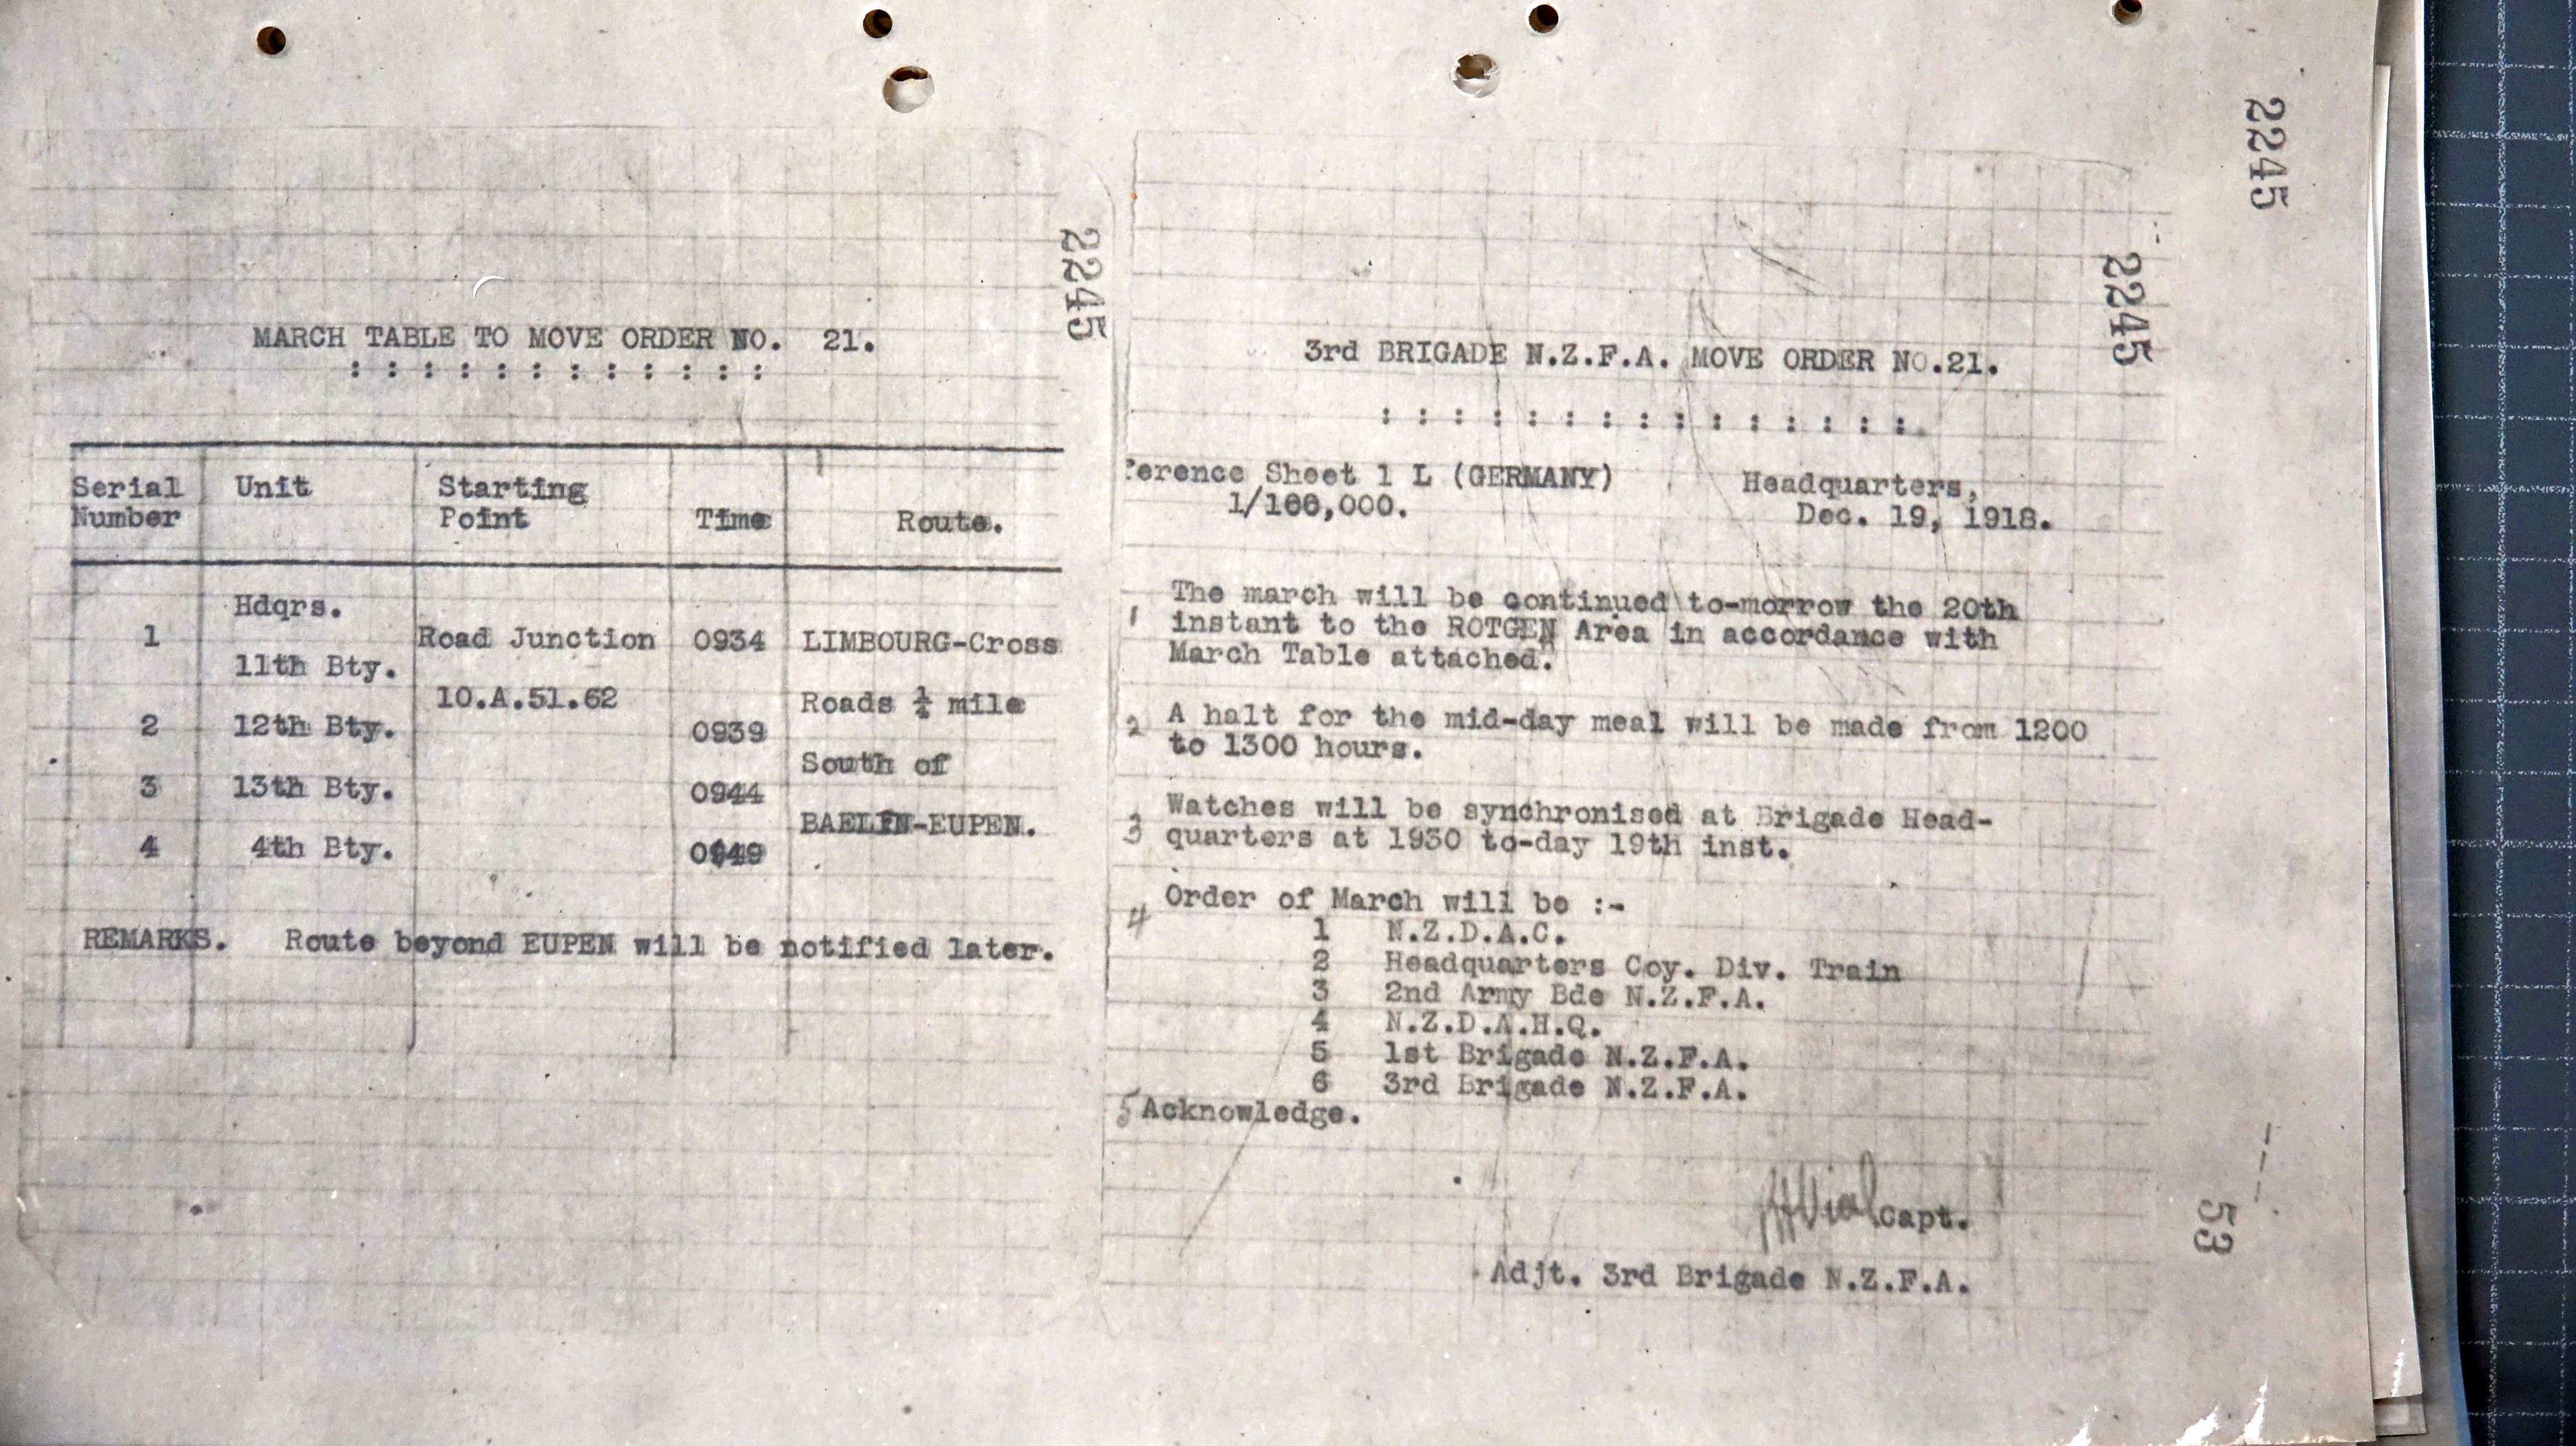 MARCH TABLE TO MOVE ORDER NO. 21.
: : : : : : : : : : : :
Serial Number Unit Starting Point Time Route.
Hdqrs.
1 Road Junction 0934 LIMBOURG-Cross
11th Bty.
10.A.51.62 Roads ¼ mile
2 12th Bty. 0939
South of
3 13th Bty. 0944
BAELEN-EUPEN.
4 4th Bty. 0949
REMARKS. Route beyond EUPEN will be notified later.
2245
3rd BRIGADE N.Z.F.A. MOVE ORDER NO.21.
: : : : : : : : : : : : : : :
ference Sheet 1 L (GERMANY)
1/100,000.
Headquarters,
Dec. 19, 1918.
1 The march will be continued to-morrow the 20th
instant to the ROTGEN Area in accordance with
March Table attached.
2 A halt for the mid-day meal will be made from 1200
to 1300 hours.
3 Watches will be synchronised at Brigade Head-
quarters at 1930 to-day 19th inst.
4 Order of March will be :-
1 N.Z.D.A.C.
2 Headquarters Coy. Div. Train
3 2nd Army Bde N.Z.F.A.
4 N.Z.D.A.H.Q.
5 1st Brigade N.Z.F.A.
6 3rd Brigade N.Z.F.A.
5 Acknowledge.
Capt.
Adjt. 3rd Brigade N.Z.F.A.
2245
2245
53